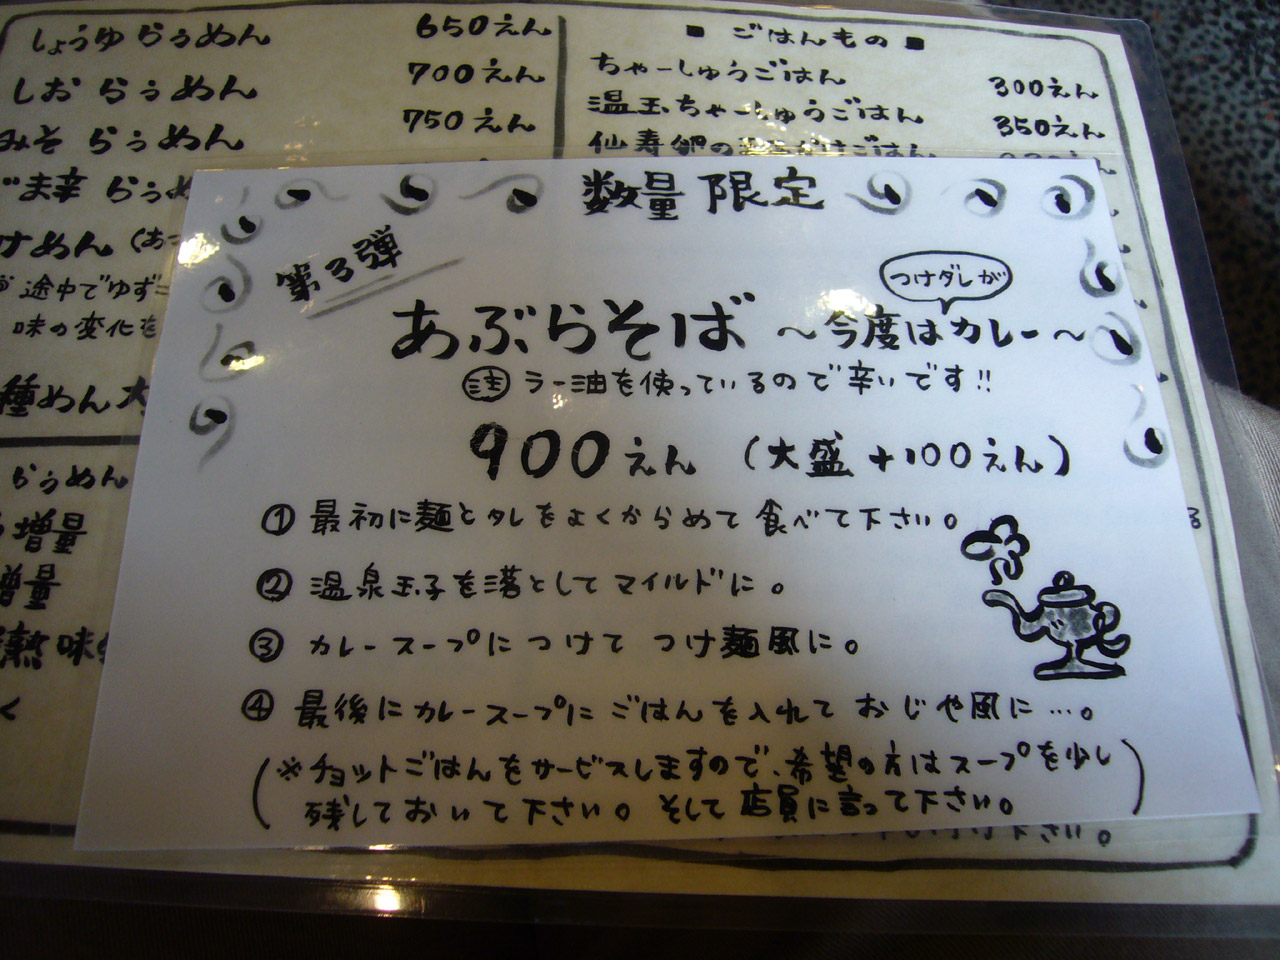 しょうゆらぅめん 650えん
しお らぅめん 700えん
みそ らぅめん 750えん
ま辛 らぅめ
けめん (あつ
途中でゆず
味の変化を
種めん 大
らぅめん
増量
増量
熱 味
く
■ ごはんもの ■
ちゃーしゅうごはん 300えん
温玉ちゃーしゅうごはん 350えん
仙寿卵の ごはん
数量 限定
第3弾
つけダレが
あぶらそば ～今度はカレー～
注 ラー油を使っているので辛いです!!
900えん (大盛 +100えん)
① 最初に麺とタレをよくからめて 食べて下さい。
② 温泉玉子を落としてマイルドに。
③ カレースープにつけて つけ麺風に。
④ 最後にカレースープに ごはんを入れて おじや風に…。
(※チョットごはんをサービスしますので、希望の方はスープを少し
残しておいて下さい。そして店員に言って下さい。)
下さい。